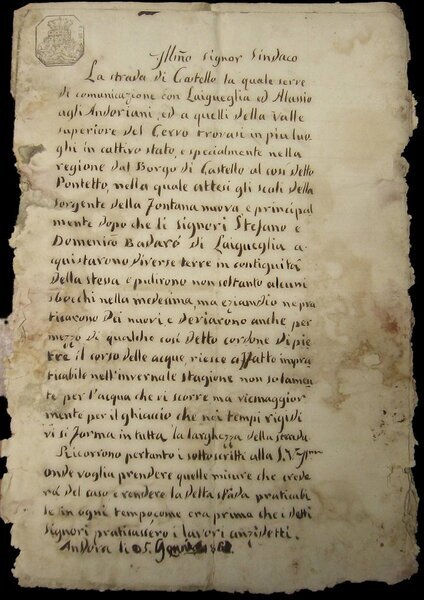 Illmo Signor Sindaco
La strada di Castello la quale serve
di comunicazione con Laigueglia ed Alassio
agli Andoriani, ed a quelli della valle
superiore del Cervo trovasi in piu luo
ghi in cattivo stato, e specialmente nella
regione dal Borgo di Castello al così detto
Pontetto, nella quale attesi gli scoli della
sorgente della Fontana nuova e principal
mente dopo che li Signori Stefano e
Domenico Badaró di Laigueglia a-
quistarono diverse terre in contiguità
della stessa e pulirono non soltanto alcuni
sbocchi nella medesima, ma eziandio ne pra
ticarono dei nuovi e deviarono anche per
mezzo di qualche così detto cordone di pie
tre il corso delle acque, riesce affatto impra
ticabile nell'invernale stagione non solamen
te per l'acqua che vi scorre ma viemaggior
mente per il ghiaccio che nei tempi rigidi
vi si forma in tutta la larghezza della strada
Ricorrono pertanto i sottoscritti alla S.V.
onde voglia prendere quelle misure che crede
rà del caso e rendere la detta strada praticabi
le in ogni tempo, come era prima che i detti
Signori praticassero i lavori anzidetti.
Andora li